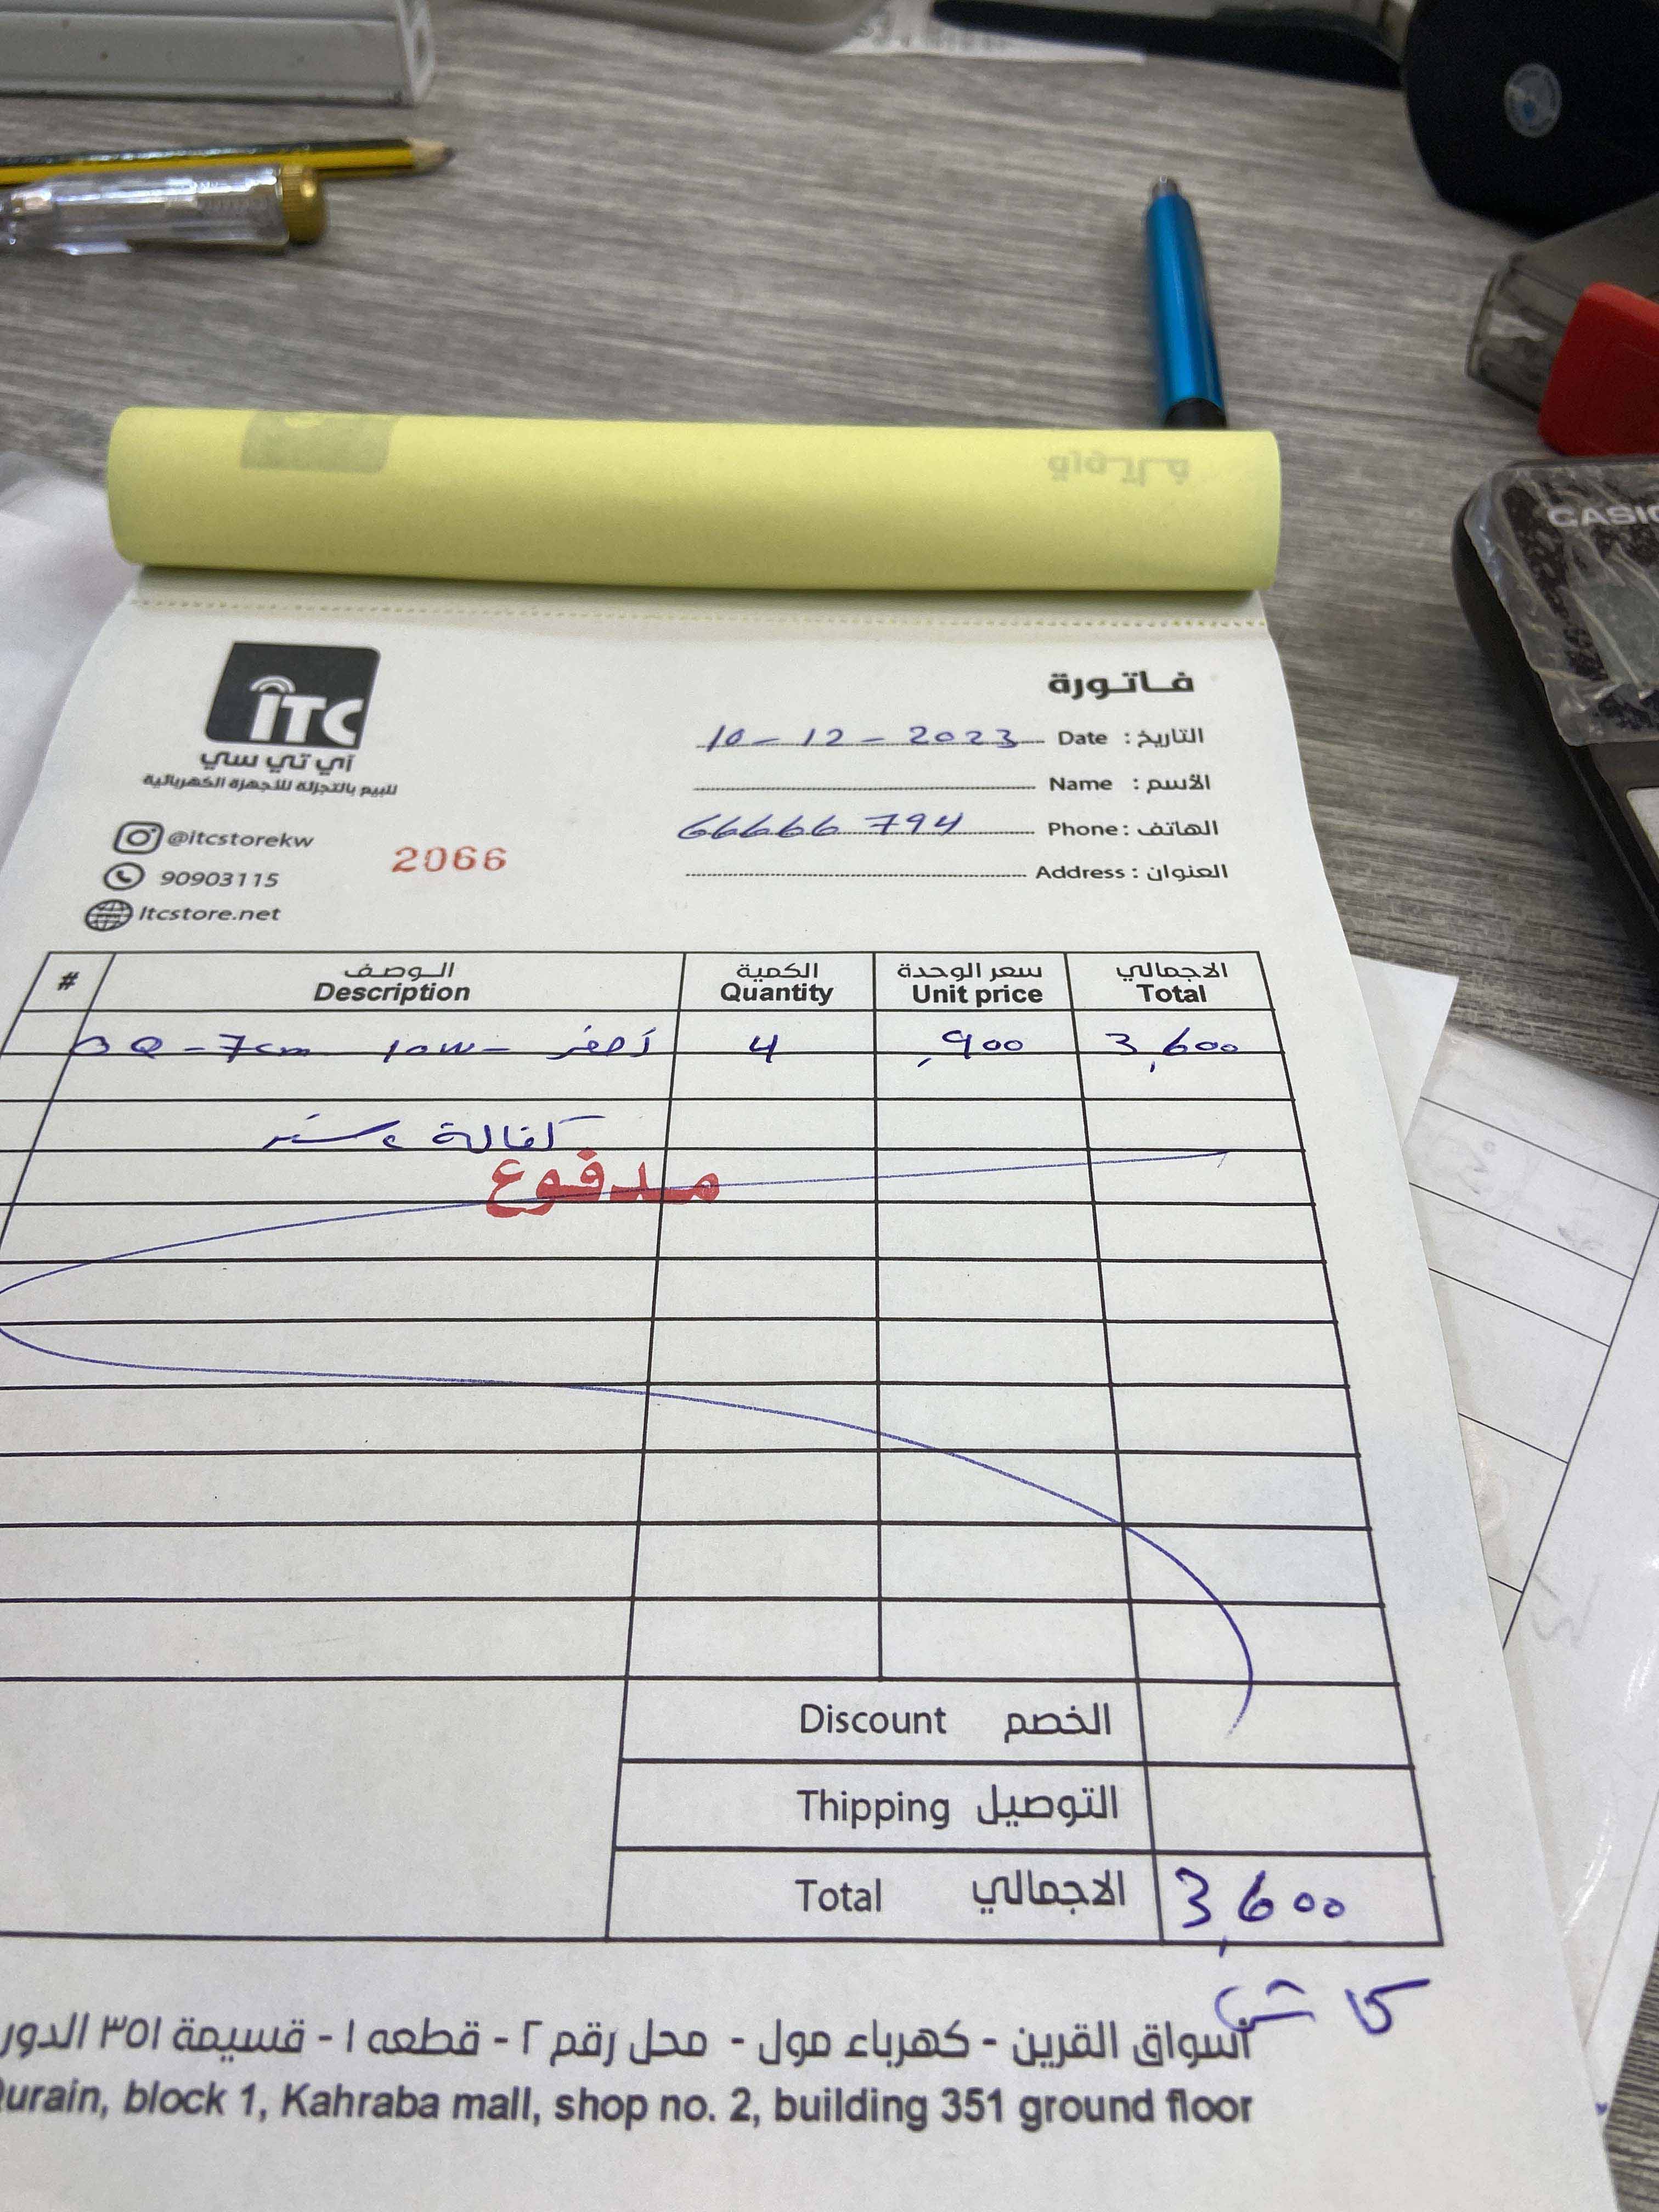 CASIO
iTC
آي تي سي
للبيع بالتجزئة للأجهزة الكهربائية
@itcstorekw
90903115
Itcstore.net
2066
فاتورة
التاريخ : Date 10-12-2023
الأسم : Name
الهاتف : Phone 66666794
العنوان : Address
# الوصف Description الكمية Quantity سعر الوحدة Unit price الاجمالي Total
7cm 10W - أصفر 4 ,900 3,600
كفالة سنة
مدفوع
Discount الخصم
Thipping التوصيل
Total الاجمالي 3,600
كاش
أسواق القرين - كهرباء مول - محل رقم ٢ - قطعه ١ - قسيمة ٣٥١ الدور
Qurain, block 1, Kahraba mall, shop no. 2, building 351 ground floor